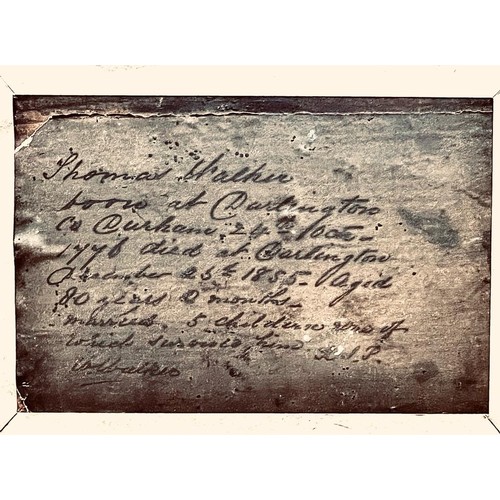 Thomas Walker
born at Darlington
Co Durham 24th Oct
1776 died at Darlington
December 25th 1855. Aged
80 years 2 months
married. 5 children one of
survived him R.I.P.
Walker